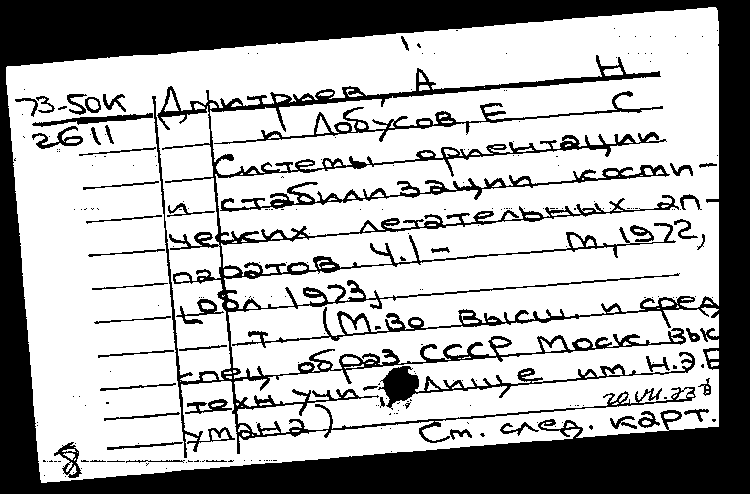 1.
73-50К Дмитриев, А Н
2611 и Лобусов, Е С
Системы ориентации
и стабилизации косми-
ческих летательных ап-
паратов. Ч.1- М., 1972,
[обл. 1973].
т. (М-во высш. и сред
спец. образ. СССР Моск. выс
техн. учи-лище им. Н.Э.Б
умана).
20.VII.73 в
См. след. карт.
8